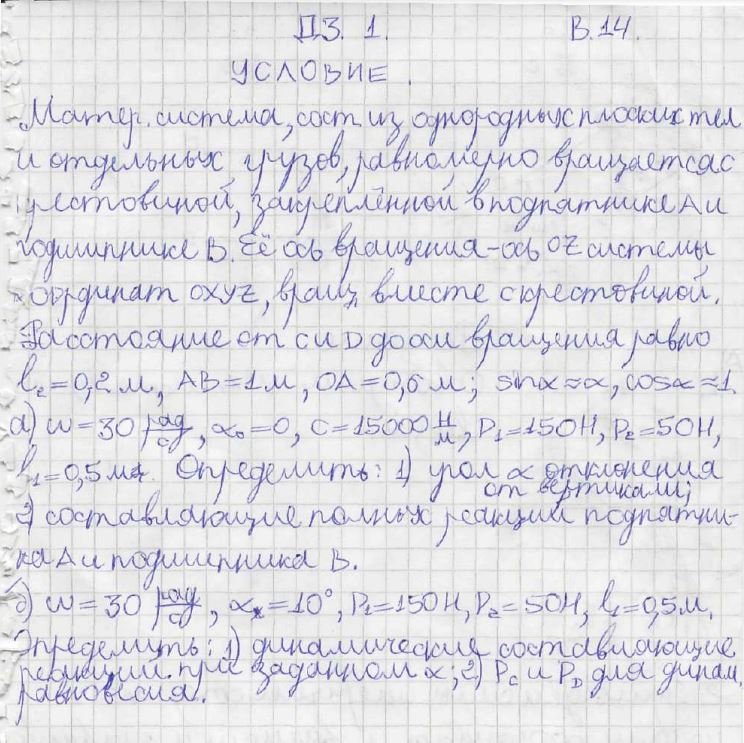 ДЗ. 1. В.14.
УСЛОВИЕ.
Матер. система, сост. из однородных плоских тел
и отдельных грузов, равномерно вращается с
рестовиной, закреплённой в подпятнике A и
подшипнике B. Её ось вращения - ось OZ системы
координат OXYZ, вращ. вместе с крестовиной.
Расстояние от C и D до оси вращения равно
l₂=0,2м, AB=1м, OA=0,6м; sinα≈α, cosα≈1.
а) ω=30 рад/с, α₀=0, C=15000 Н/м, P₁=150Н, P₂=50Н,
l₁=0,5м. Определить: 1) угол α отклонения
от вертикали;
2) составляющие полных реакций подпятни-
ка A и подшипника B.
б) ω=30 рад/с, αₓ=10°, P₁=150Н, P₂=50Н, l₁=0,5м.
Определить: 1) динамические составляющие
реакций при заданном α; 2) P_C и P_D для динам.
равновесия.